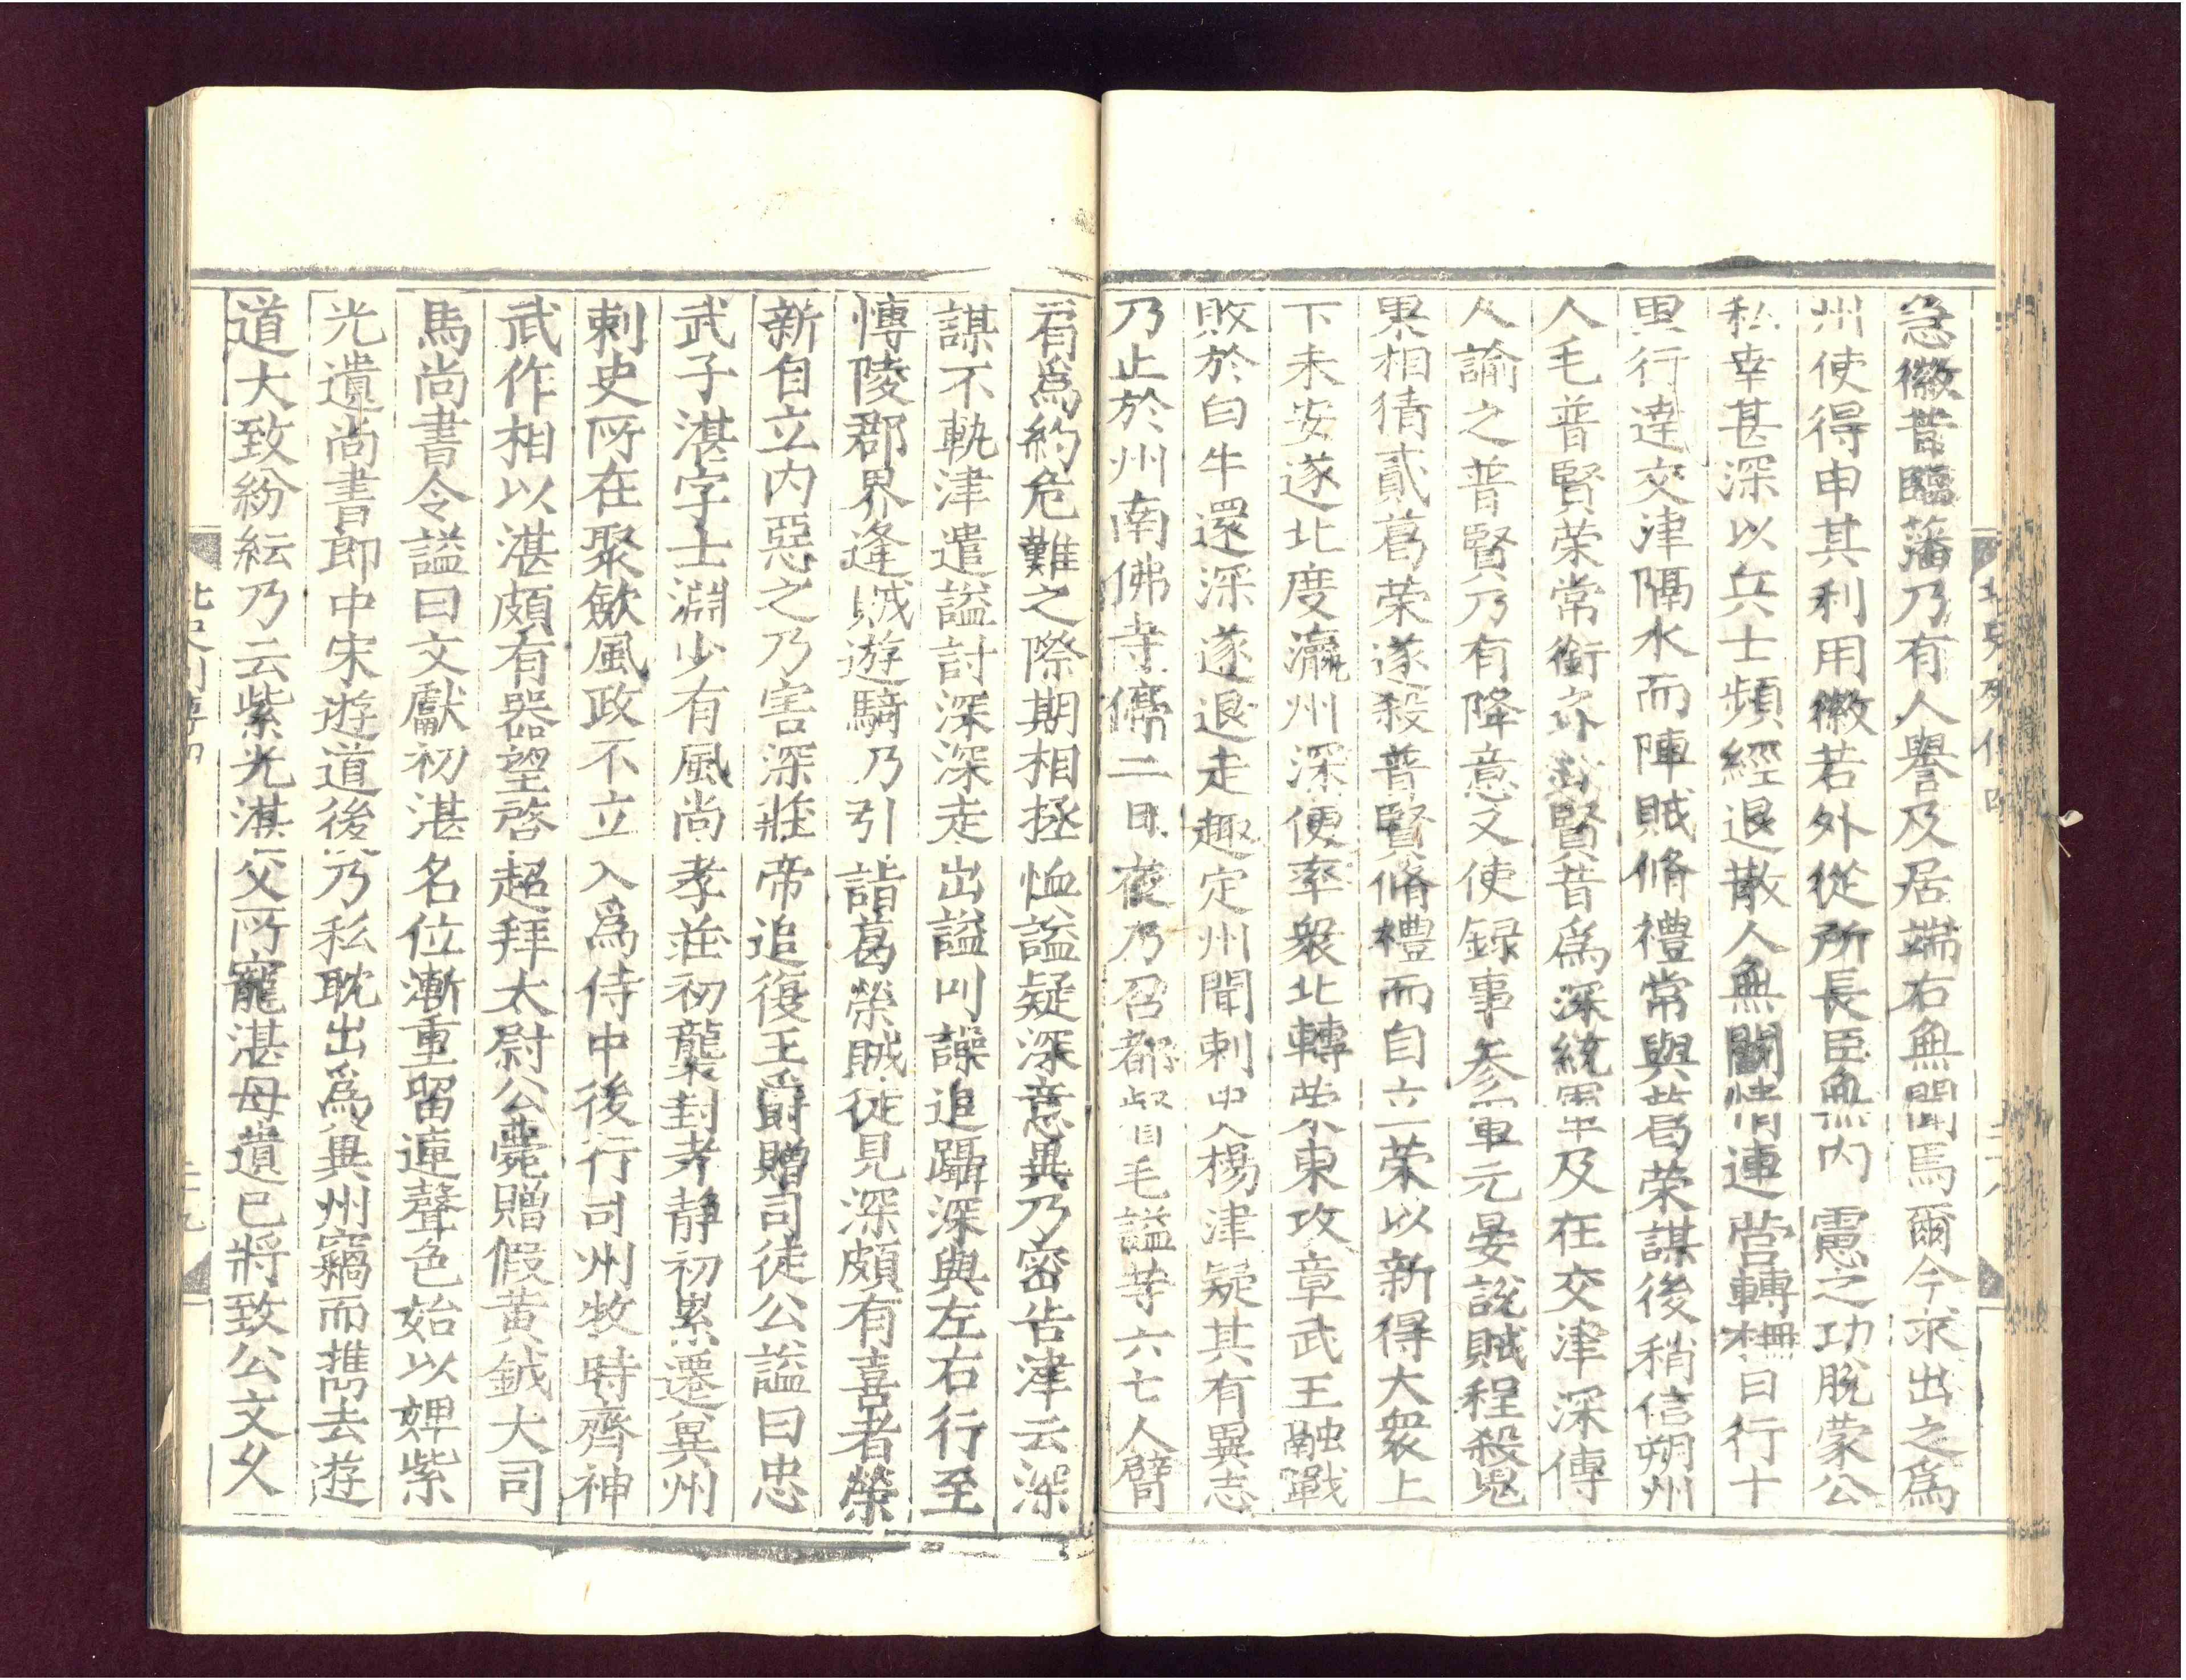 急徽昔臨藩乃有人譽及居端右無聞焉爾今求出之爲
州使得申其利用徽若外從所長臣無內慮之功脫蒙公
私幸甚深以兵士頻經退散人無鬪情連營轉柵日行十
里行達交津隔水而陣賊脩禮常與葛榮謀後稍信朔州
人毛普賢榮常銜之普賢昔爲深統軍及在交津深傳
人諭之普賢乃有降意又使録事叅軍元晏説賊程殺鬼
果相猜貳葛荣遂殺普賢脩禮而自立荣以新得大衆上
下未安遂北度瀛州深便率衆北轉荣東攻章武王融戰
敗於白牛還深遂退走趣定州聞刺史楊津疑其有異志
乃止於州南佛寺停二日夜乃召都督毛謚等六七人臂
肩爲約危難之際期相拯恤謚疑深意異乃密告津云深
謀不軌津遣謚討深深走出謚叫譟追躡深與左右行至
慱陵郡界逢賊遊騎乃引詣葛榮賊徒見深頗有喜者榮
新自立内惡之乃害深莊帝追復王爵贈司徒公謚曰忠
武子湛字士淵少有風尚孝莊初襲封孝静初累遷冀州
刺史所在聚斂風政不立入爲侍中後行司州牧時齊神
武作相以湛頗有器望啓超拜太尉公薨贈假黃鉞大司
馬尚書令謚曰文獻初湛名位漸重留連聲色始以婢紫
光遺尚書郎中宋遊道後乃私耽出爲冀州竊而擕去遊
道大致紛紜乃云紫光湛父所寵湛母遺已將致公文乆
北史列傳四
二十八
北史列傳四
二十九